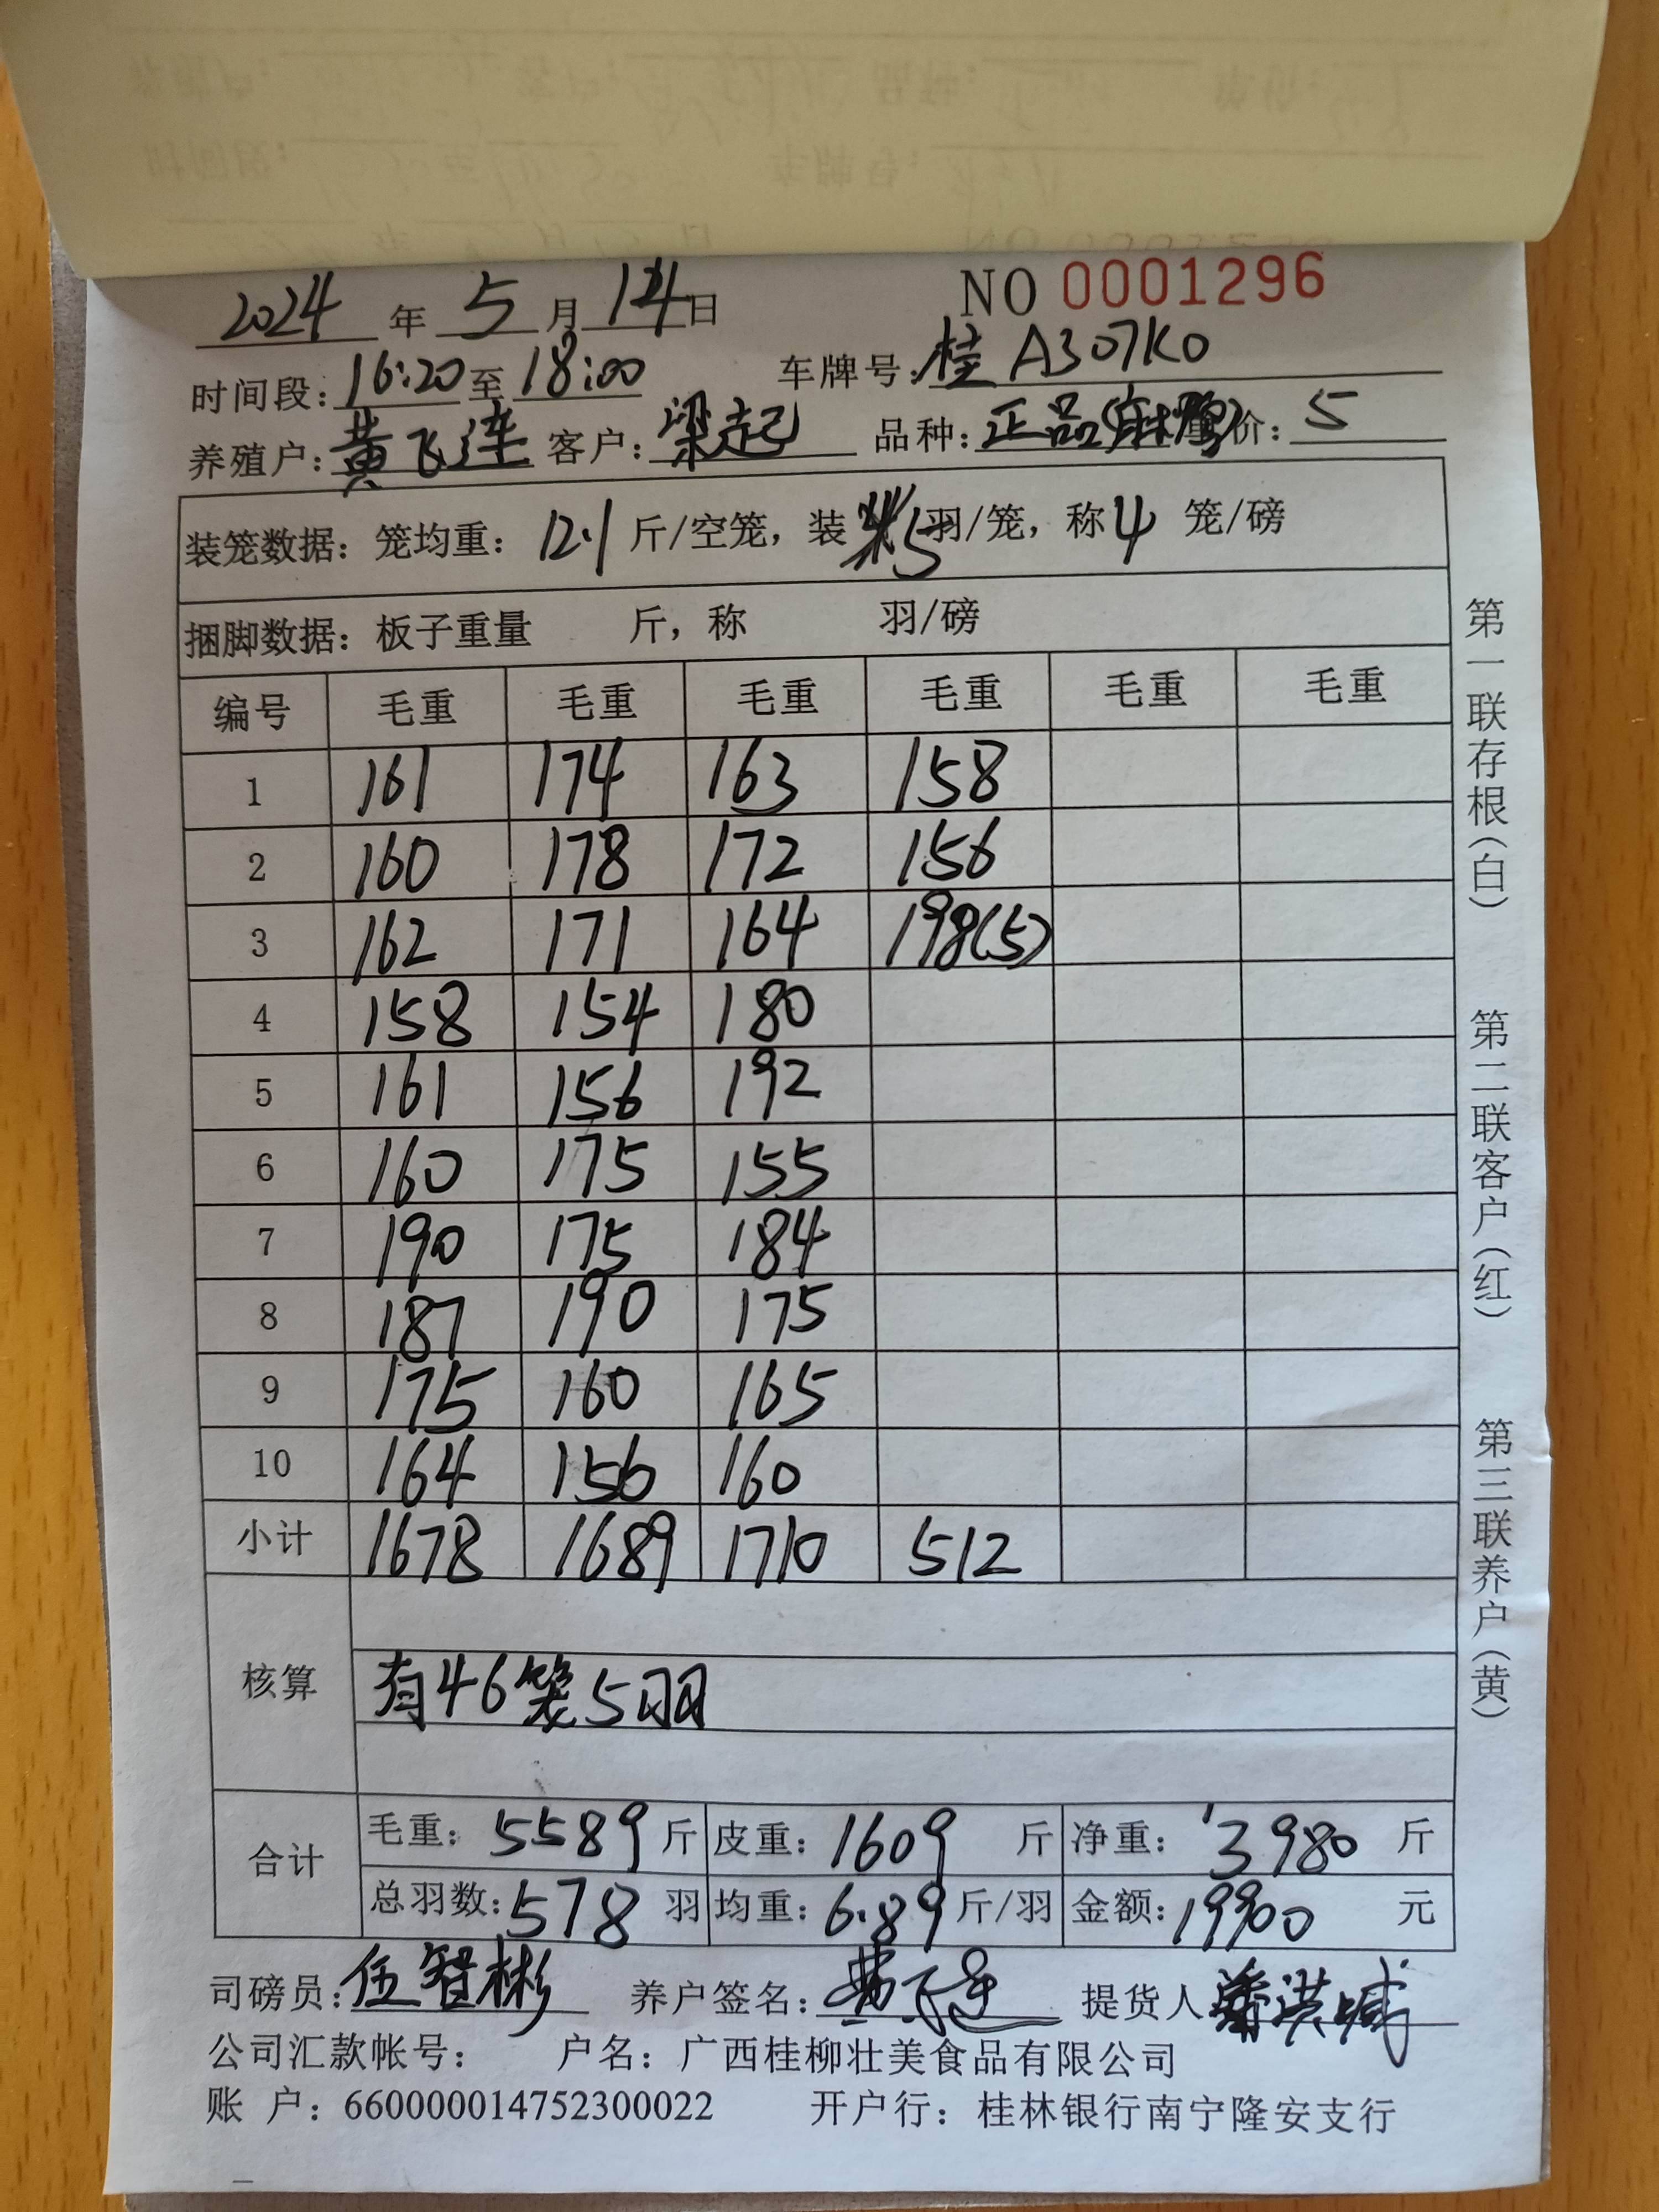 2024 年 5 月 14 日 NO 0001296
时间段: 16:20 至 18:00 车牌号: 桂 A307K0
养殖户: 黄飞连 客户: 梁起 品种: 正品 价: 5
装笼数据: 笼均重: 12.1 斤/空笼, 装 5 羽/笼, 称 4 笼/磅
捆脚数据: 板子重量 斤, 称 羽/磅
编号 毛重 毛重 毛重 毛重 毛重 毛重
1 161 174 163 158
2 160 178 172 156
3 162 171 164 198(5)
4 158 154 180
5 161 156 192
6 160 175 155
7 190 175 184
8 187 190 175
9 175 160 165
10 164 156 160
小计 1678 1689 1710 512
核算 有46笼5羽
合计 毛重: 5589 斤 皮重: 1609 斤 净重: 3980 斤
总羽数: 578 羽 均重: 6.89 斤/羽 金额: 19900 元
司磅员: 伍智彬 养户签名: 黄飞连 提货人
公司汇款帐号: 户名: 广西桂柳壮美食品有限公司
账 户: 660000014752300022 开户行: 桂林银行南宁隆安支行
第一联存根(白) 第二联客户(红) 第三联养户(黄)